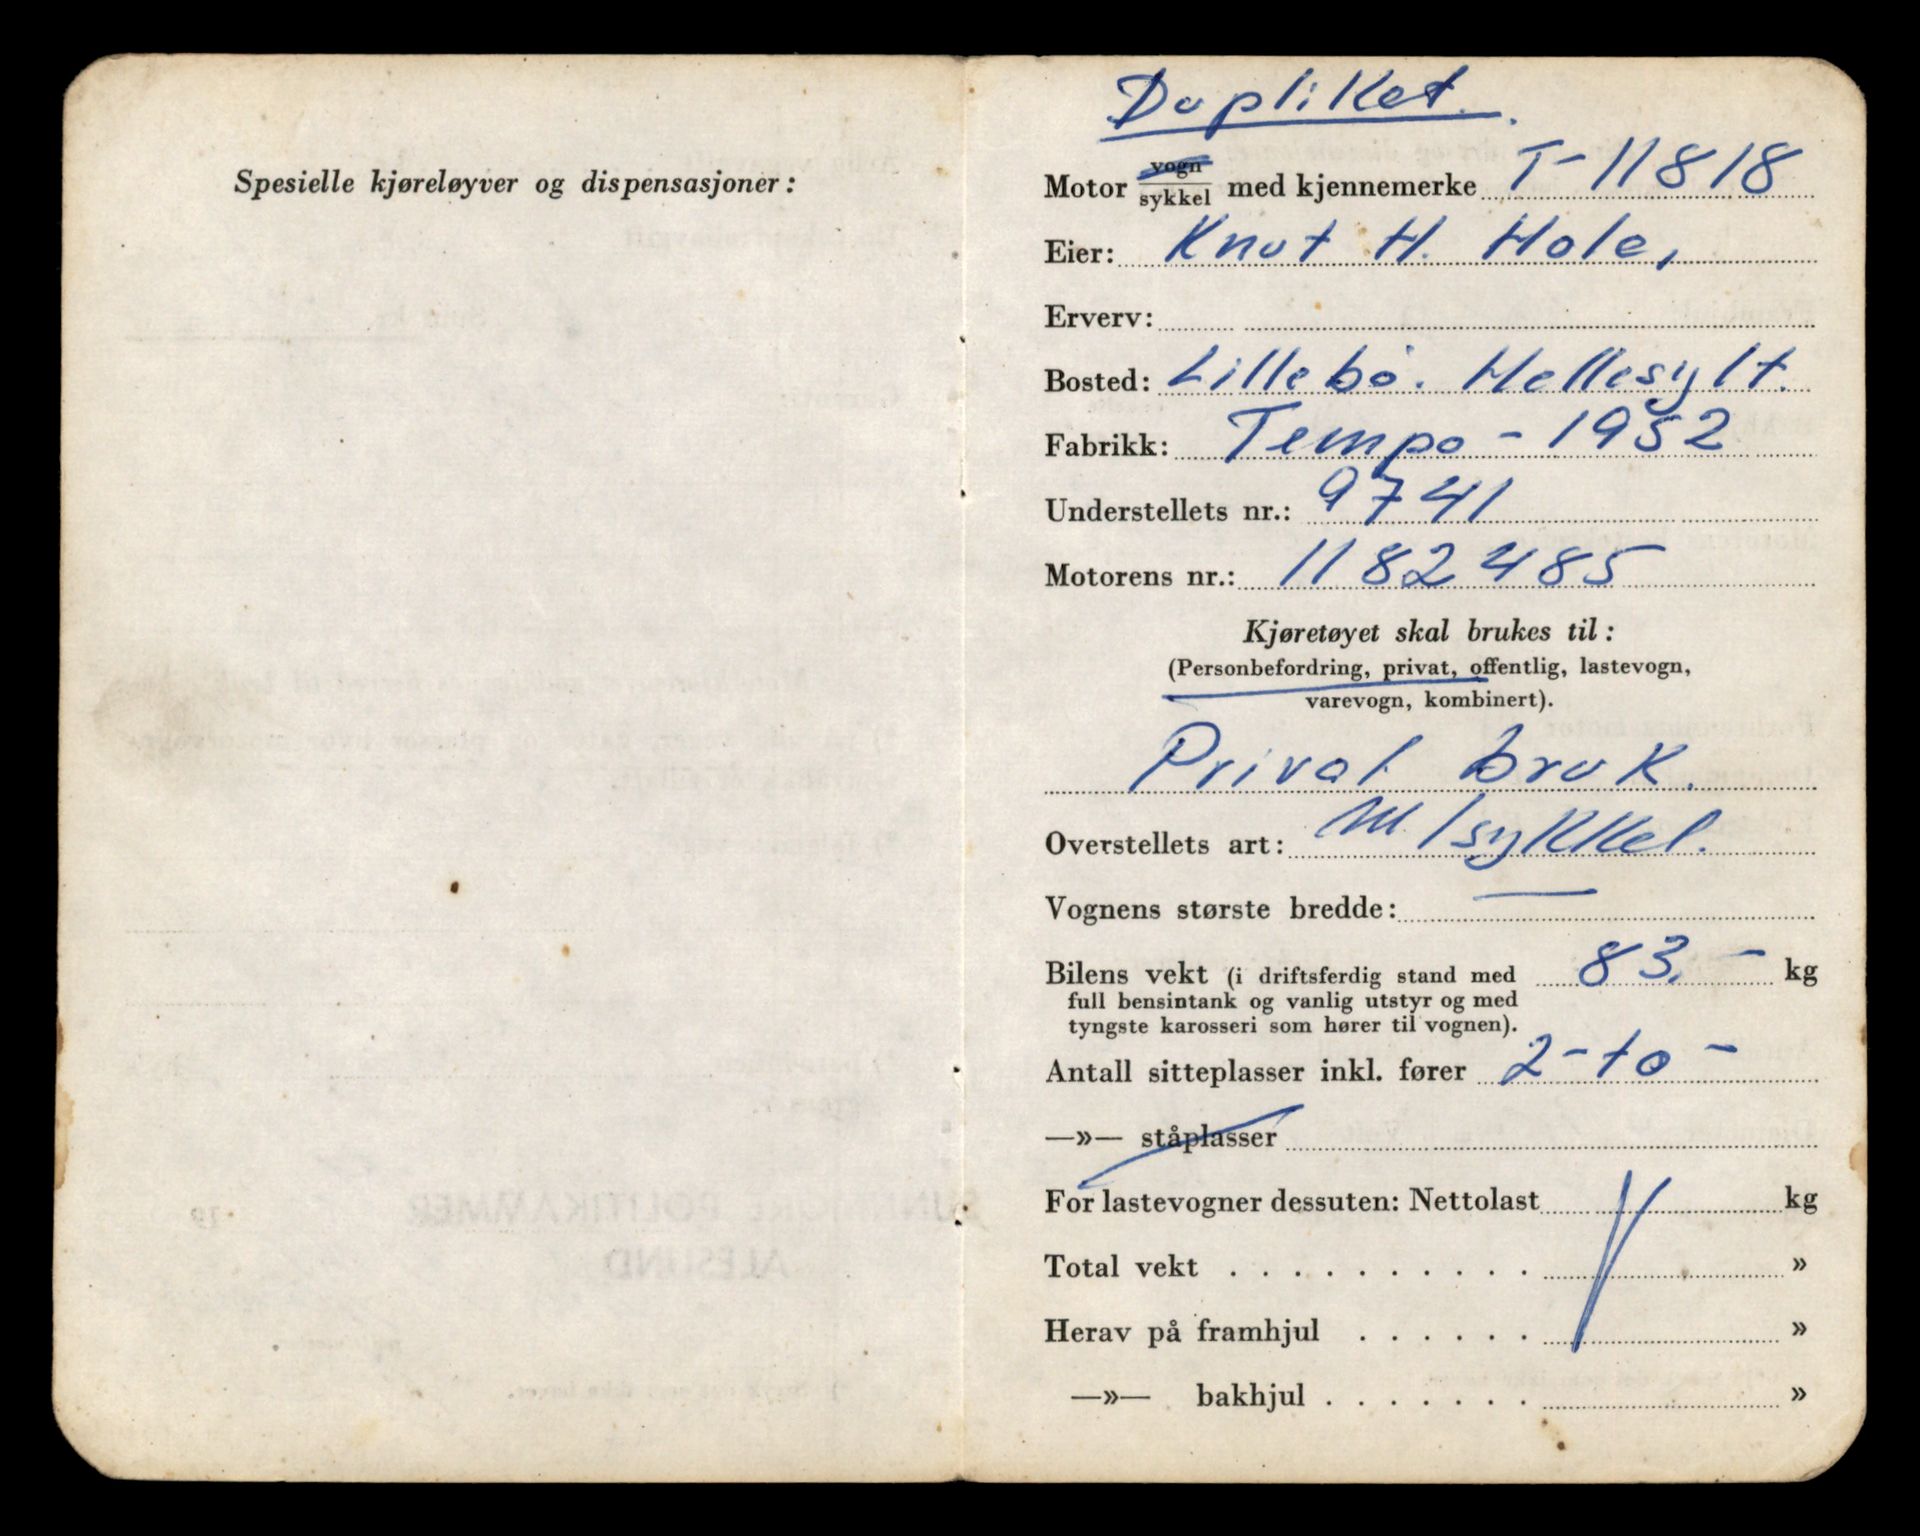 Spesielle kjøreløyver og dispensasjoner:
Duplikat.
Motor vogn/sykkel med kjennemerke T-11818
Eier: Knut H. Hole,
Erverv:
Bosted: Lillebö. Hellesylt.
Fabrikk: Tempo - 1952
Understellets nr.: 9741
Motorens nr.: 1182485
Kjøretøyet skal brukes til:
(Personbefordring, privat, offentlig, lastevogn,
varevogn, kombinert).
Privat bruk.
Overstellets art: M/sykkel.
Vognens største bredde: —
Bilens vekt (i driftsferdig stand med 83.- kg
full bensintank og vanlig utstyr og med
tyngste karosseri som hører til vognen).
Antall sitteplasser inkl. fører 2-to-
—»— ståplasser
For lastevogner dessuten: Nettolast kg
Total vekt . . . . . . . . . . . »
Herav på framhjul . . . . . . »
—»— bakhjul . . . . . . . »
SUNNMØRE POLITIKAMMER
ÅLESUND